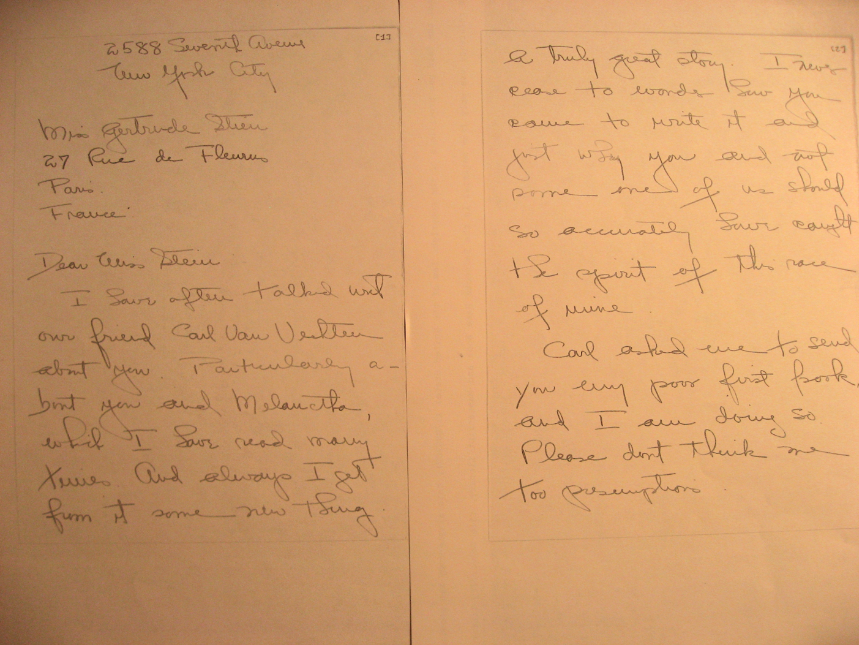 [1]
2588 Seventh Avenue
New York City
Miss Gertrude Stein
27 Rue de Fleurus
Paris.
France.
Dear Miss Stein
I have often talked with
our friend Carl Van Vechten
about you. Particularly a-
bout you and Melanctha,
which I have read many
times. And always I get
from it some new thing.
[2]
a truly great story. I never
cease to wonder how you
came to write it and
just why you and not
some one of us should
so accurately have caught
the spirit of this race
of mine.
Carl asked me to send
you my poor first book,
and I am doing so.
Please dont think me
too presumptious